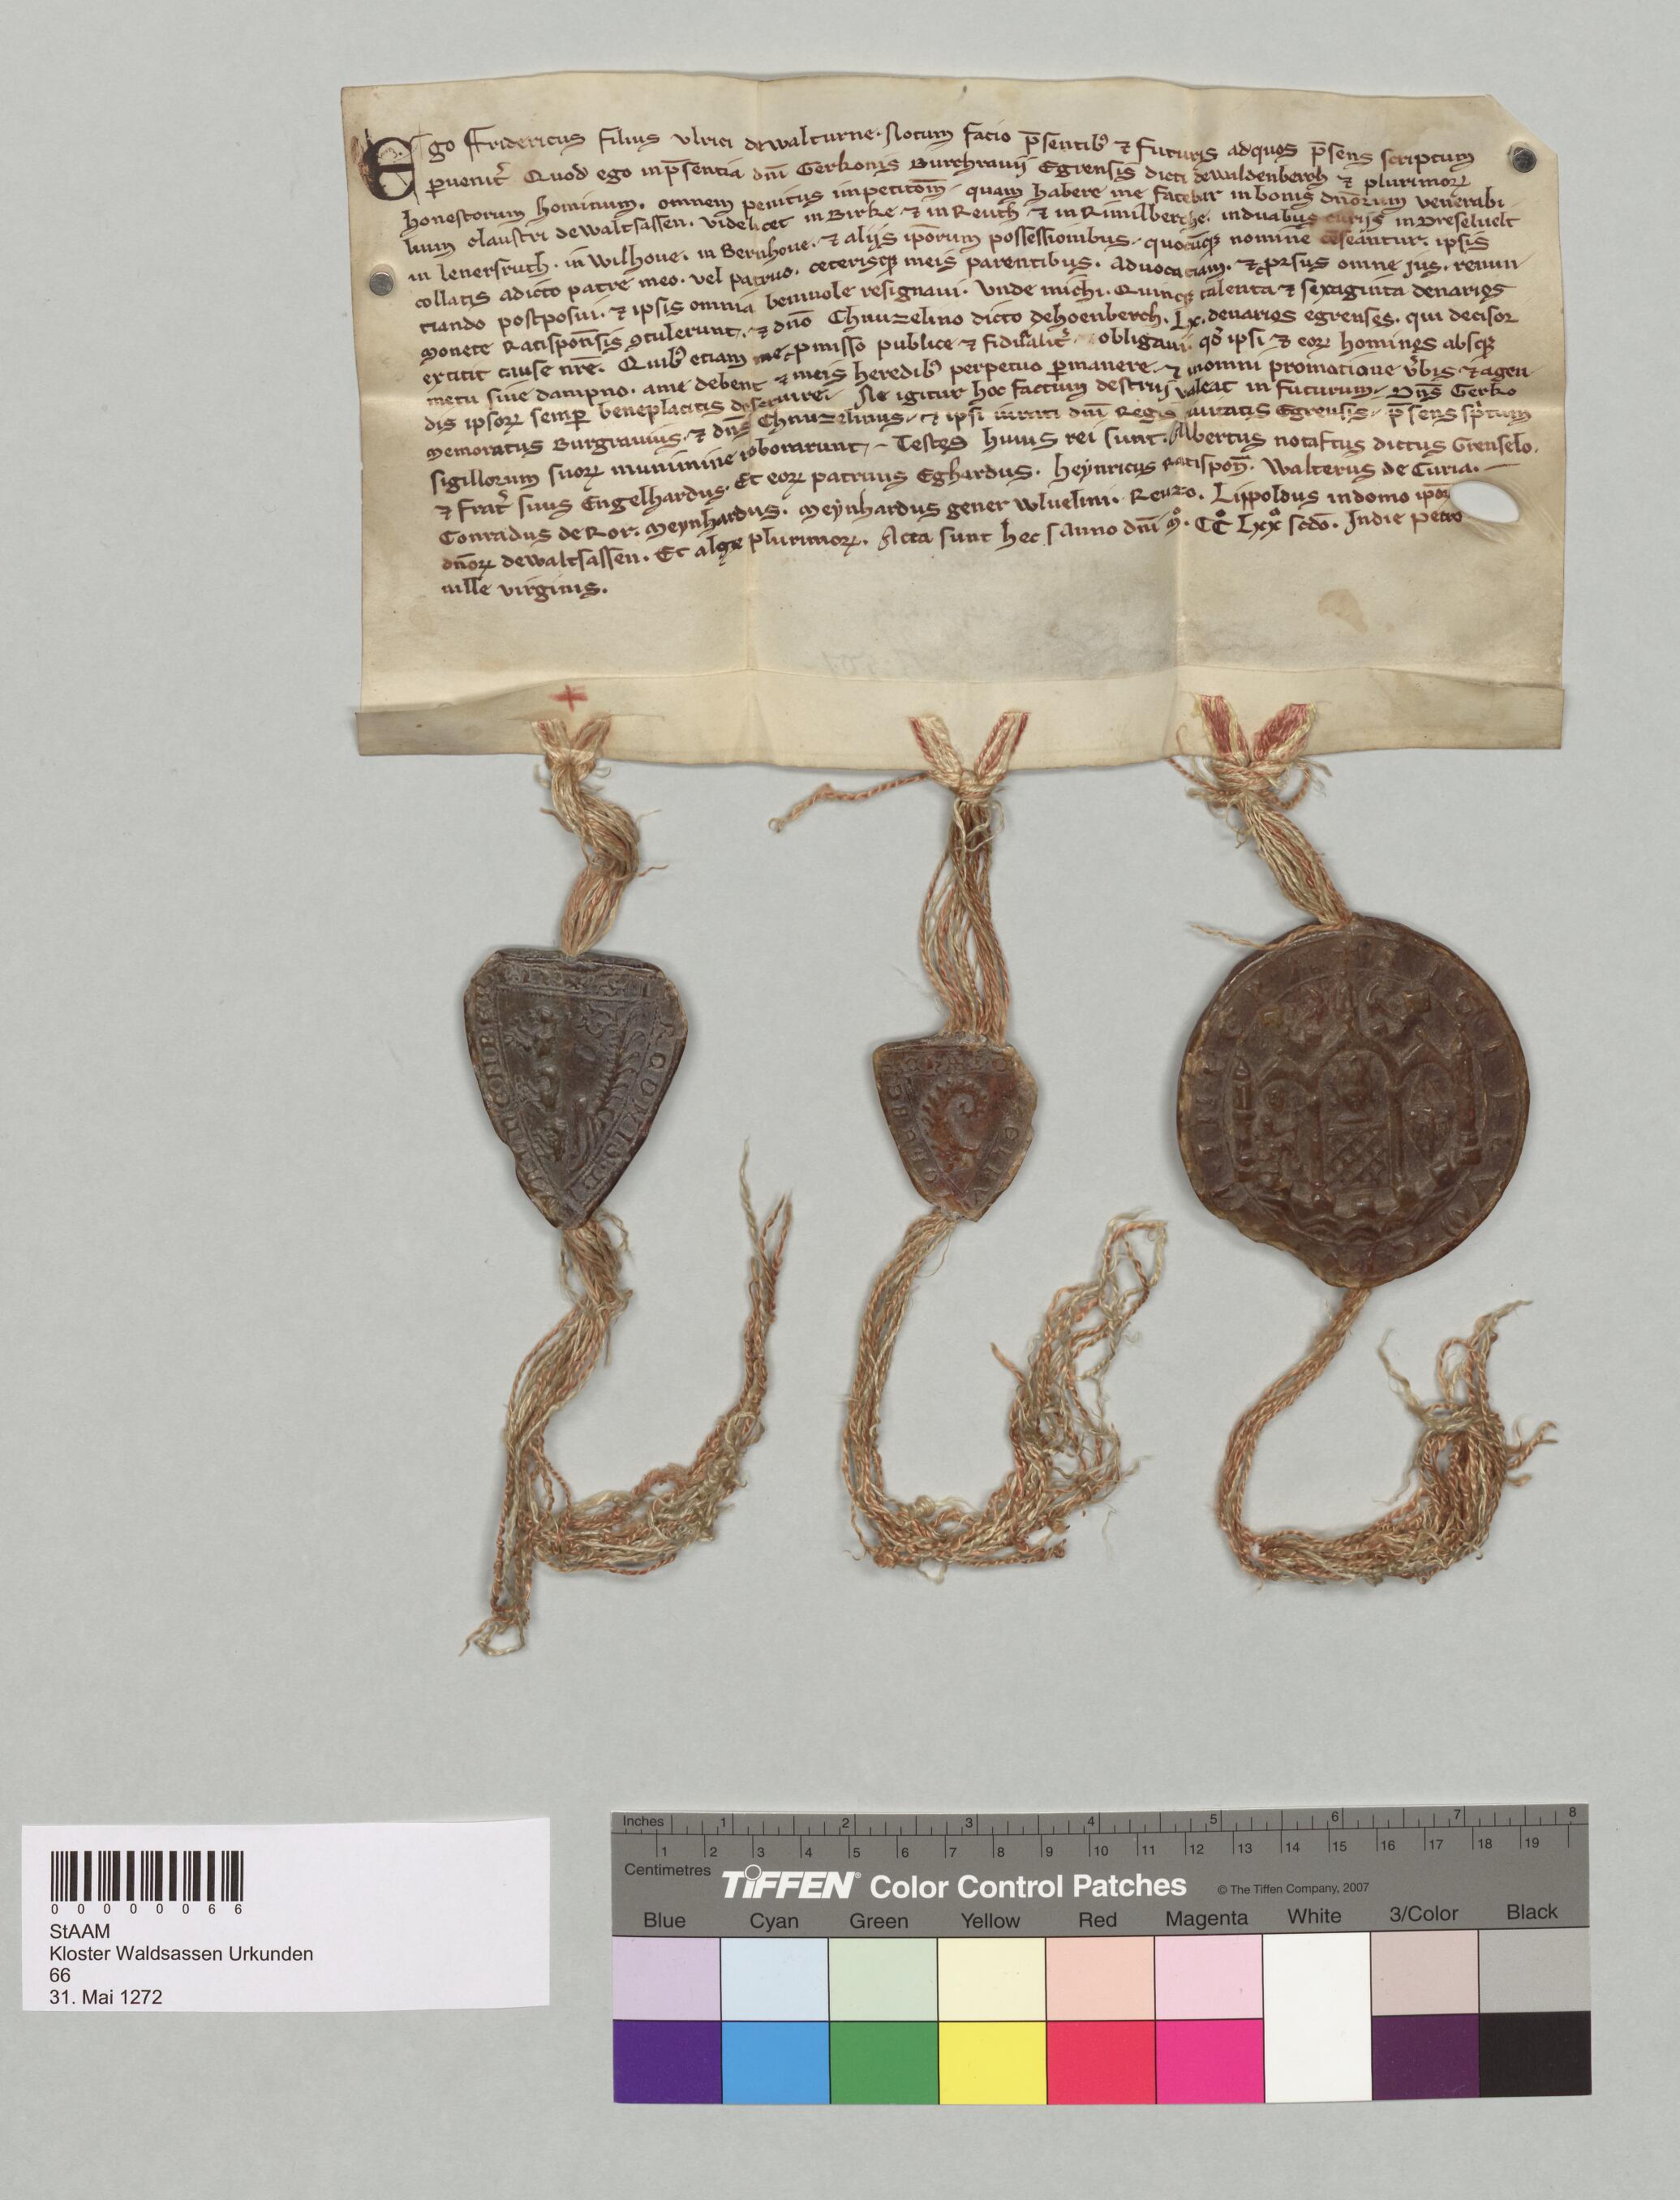 Ego Fridericus filius vlrici de walturne. Notum facio p̄sentibꝰ ⁊ futuris ad quos p̄sens scriptum
ꝑuenit̉ Quod ego in p̄sentia dn̄i Gerkonis Burchrauij Egrensis dicti de waldenberch ⁊ plurimoꝝ
honestorum hominum. omnem penitus impetitōm quam habere me fatebar in bonis dn̄orum venerabi
lium claustri de waltsassen. videlicet in Birke ⁊ in Reuth ⁊ in Rimilberche. in duabus curijs in Dreseluelt
in lenersruth. in wilhoue. in Bernhoue. ⁊ alijs ip̄orum possessionibus. quocūqꝫ nomine cēseantur. ipsis
collatis a dicto patre meo. vel patruo. ceterisqꝫ meis parentibus. aduocatiam. ⁊ ꝓrsus omne jus. renun
tiando postposui. ⁊ ipsis omnia beniuole resignaui. Vnde michi. Quinqꝫ talenta ⁊ sexaginta denarios
monete Ratispon̄sis ꝯtulerunt. ⁊ dn̄o Chnuzelino dicto de hoenberch. Lx. denarios egrenses. qui decisor
extitit cause nr̄e. Quibꝰ etiam me ꝓmisso publice ⁊ fidualit̉ obligaui. qđ ipsi ⁊ eoꝝ homines absqꝫ
metu siue dampno. a me debent ⁊ meis heredibꝰ perpetuo ꝑmanere. ⁊ in omni promotione v̉bis ⁊ agen
dis ipsoꝝ semꝑ beneplacitis deseruire. Ne igitur hoc factum destruj valeat in futurum. Dn̄s Gerko
memoratus Burgrauius. ⁊ dn̄s Chnuzelinus. ⁊ ipsi iurati dn̄i Regis ciuitatis Egrensis. p̄sens sp̄tum
sigillorum suoꝝ munimine roborarunt. Testes huius rei sunt. Albertus notaftus dictus Grenselo.
⁊ frat̉ suus Engelhardus. Et eoꝝ patruus Eghardus. Heynricus ratispon̄. Walterus de Curia.
Conradus de Ror. Meynhardus. Meynhardus gener wluelini. Reuzo. Lippoldus in domo ip̄oꝝ
dn̄oꝝ de waltsassen. Et alıȩ plurimoꝝ. Acta sunt hec Anno dn̄i Mº. CCº Lxxª scdō. In die petro
nille virginis.
0 0 0 0 0 0 6 6
StAAM
Kloster Waldsassen Urkunden
66
31. Mai 1272
Inches 1 2 3 4 5 6 7 8
1 2 3 4 5 6 7 8 9 10 11 12 13 14 15 16 17 18 19
Centimetres
TIFFEN® Color Control Patches © The Tiffen Company, 2007
Blue Cyan Green Yellow Red Magenta White 3/Color Black